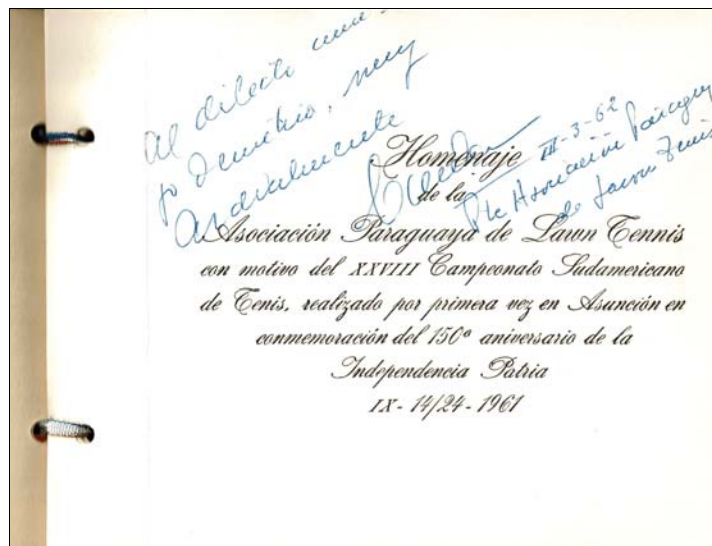 Al dilecto ami-
go Demetrio, muy
cordialmente
III-3-62
Pte Asociación Paraguay
de Lawn Tenis
Homenaje
de la
Asociación Paraguaya de Lawn Tennis
con motivo del XXVIII Campeonato Sudamericano
de Tenis, realizado por primera vez en Asunción en
conmemoración del 150º aniversario de la
Independencia Patria
IX - 14/24 - 1961